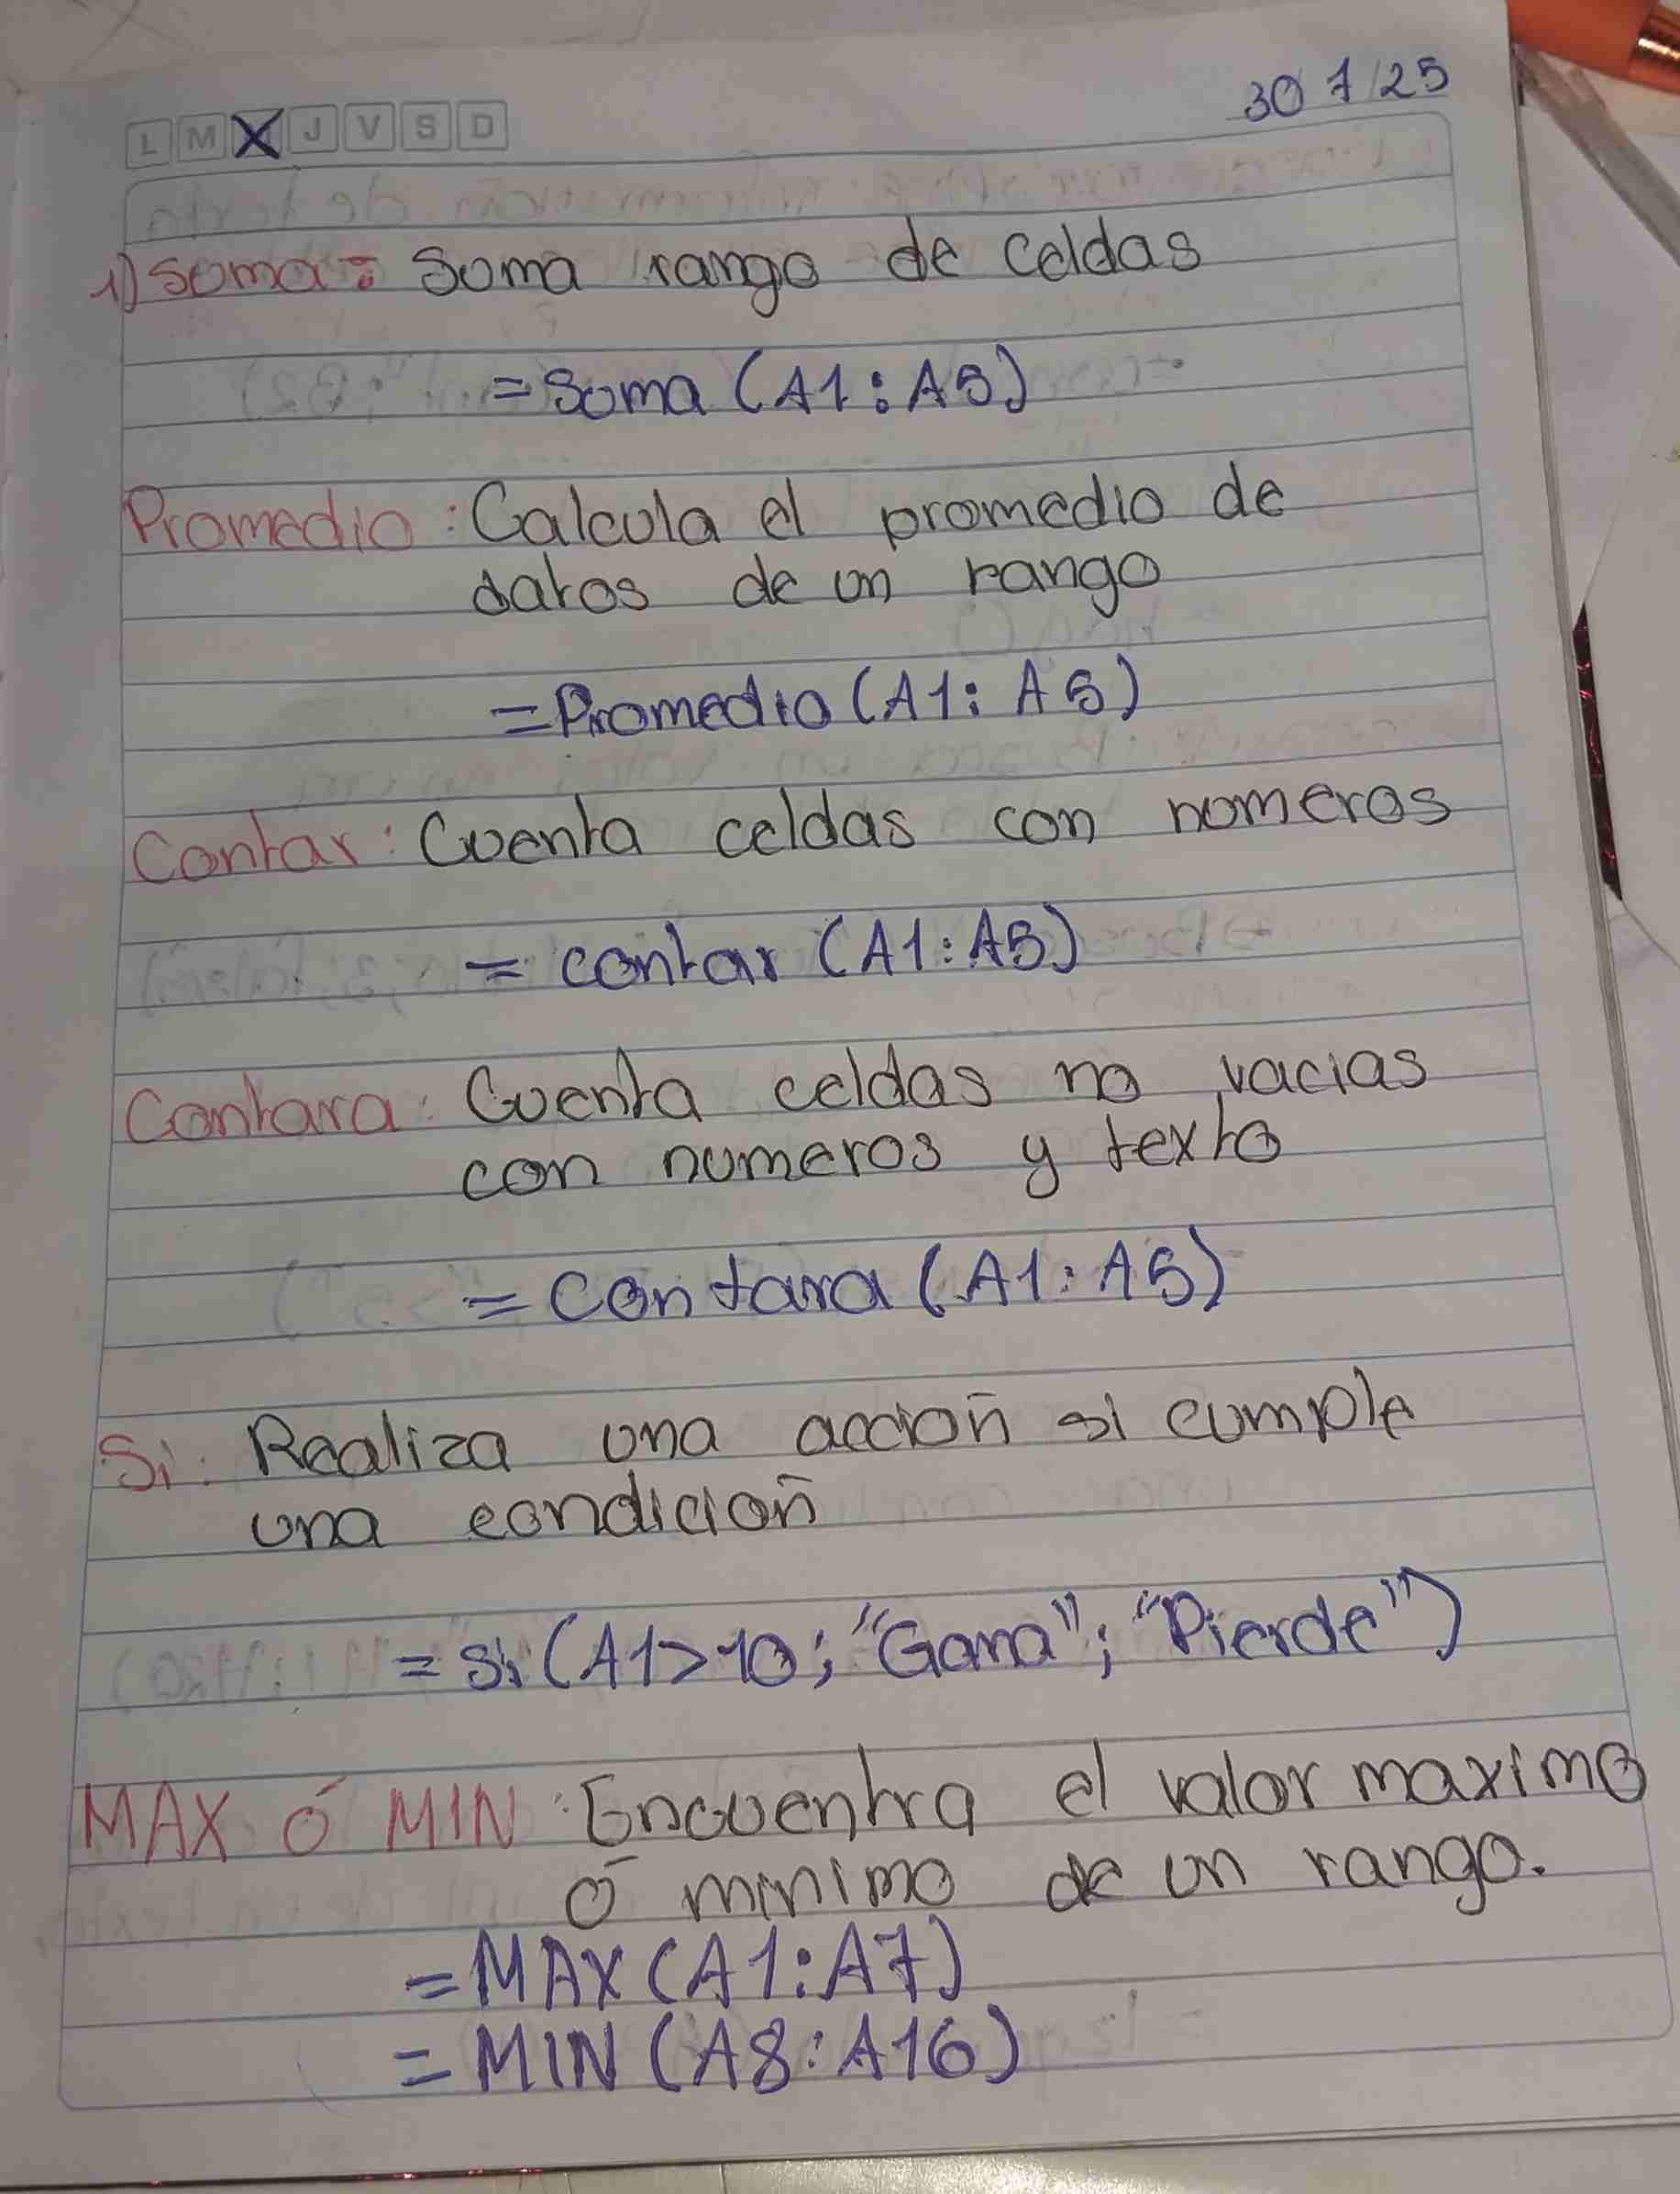 30 7/25
L M X J V S D
1) Suma: Suma rango de celdas
= Suma (A1:A5)
Promedio: Calcula el promedio de
datos de un rango
= Promedio (A1: A5)
Contar: Cuenta celdas con numeros
= contar (A1:A5)
Contara: Cuenta celdas no vacias
con numeros y texto
= contara (A1: A5)
Si: Realiza una acción si cumple
una condición
= si (A1>10; "Gana"; "Pierde")
MAX ó MIN: Encuentra el valor maximo
ó minimo de un rango.
= MAX (A1:A7)
= MIN (A8:A16)